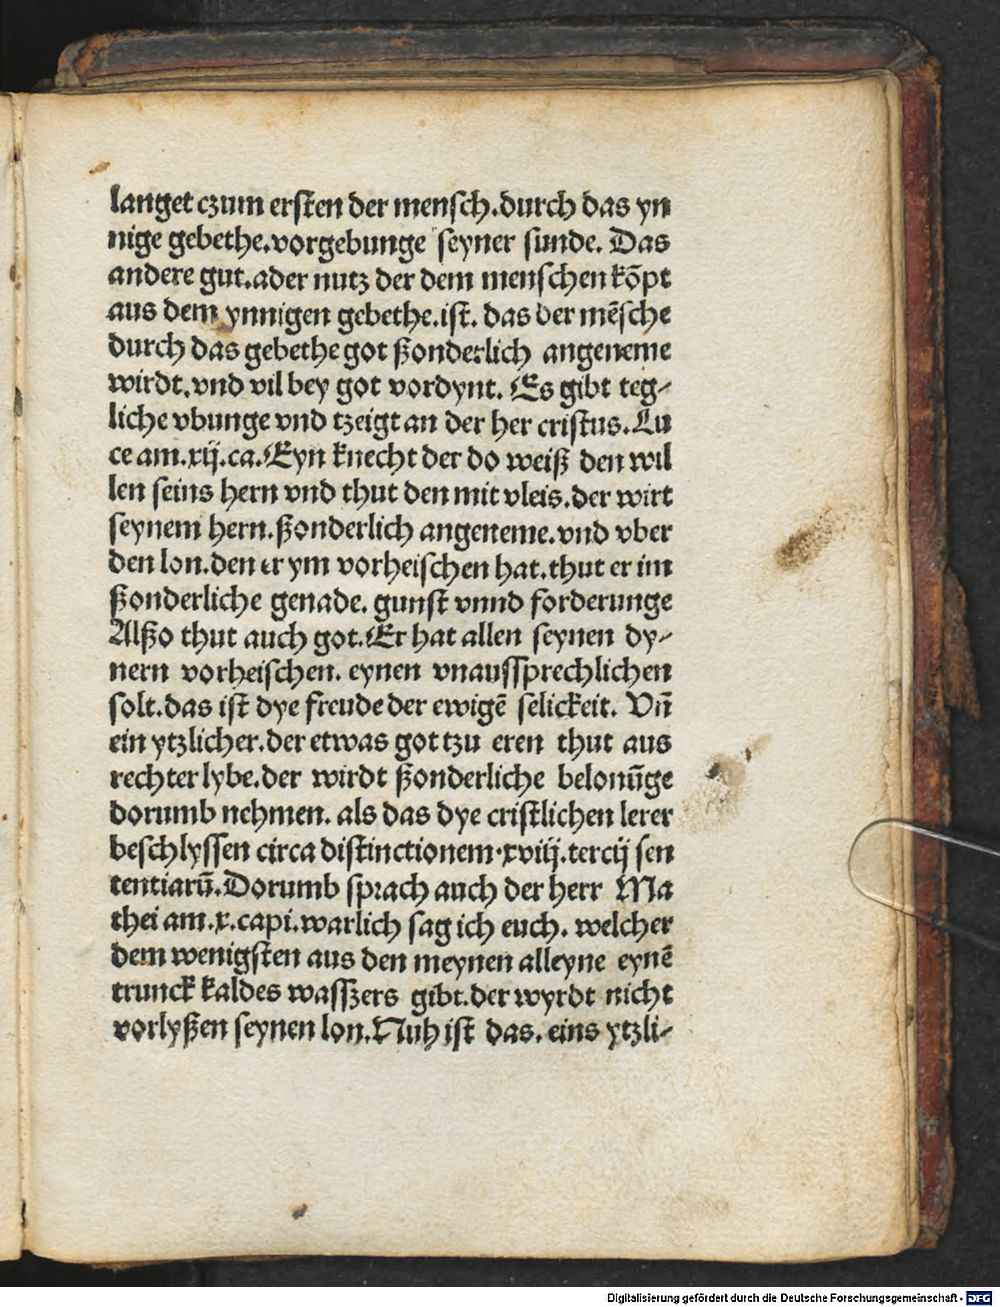 langet czum ersten der mensch.durch das yn
nige gebethe.vorgebunge seyner sunde. Das
andere gut.ader nutz der dem menschen kõpt
aus dem ynnigen gebethe.ist. das der mẽsche
durch das gebethe got ßonderlich angeneme
wirdt.vnd vil bey got vordynt. Es gibt teg-
liche vbunge vnd tzeigt an der her cristus.Lu
ce am.xij.ca.Eyn knecht der do weiß den wil
len seins hern vnd thut den mit vleis.der wirt
seynem hern.ßonderlich angeneme.vnd vber
den lon.den er ym vorheischen hat.thut er im
ßonderliche genade. gunst vnnd forderunge
Alßo thut auch got.Er hat allen seynen dy-
nern vorheischen. eynen vnaussprechlichen
solt.das ist dye freude der ewigẽ selickeit. Vñ
ein ytzlicher.der etwas got tzu eren thut aus
rechter lybe.der wirdt ßonderliche belonũge
dorumb nehmen. als das dye cristlichen lerer
beschlyssen circa distinctionem.xviij.tercij sen
tentiarũ.Dorumb sprach auch der herr Ma
thei am.x.capi.warlich sag ich euch. welcher
dem wenigsten aus den meynen alleyne eynẽ
trunck kaldes wasszers gibt.der wyrdt nicht
vorlyßen seynen lon.Nuh ist das. eins ytzli-
Digitalisierung gefördert durch die Deutsche Forschungsgemeinschaft - DFG